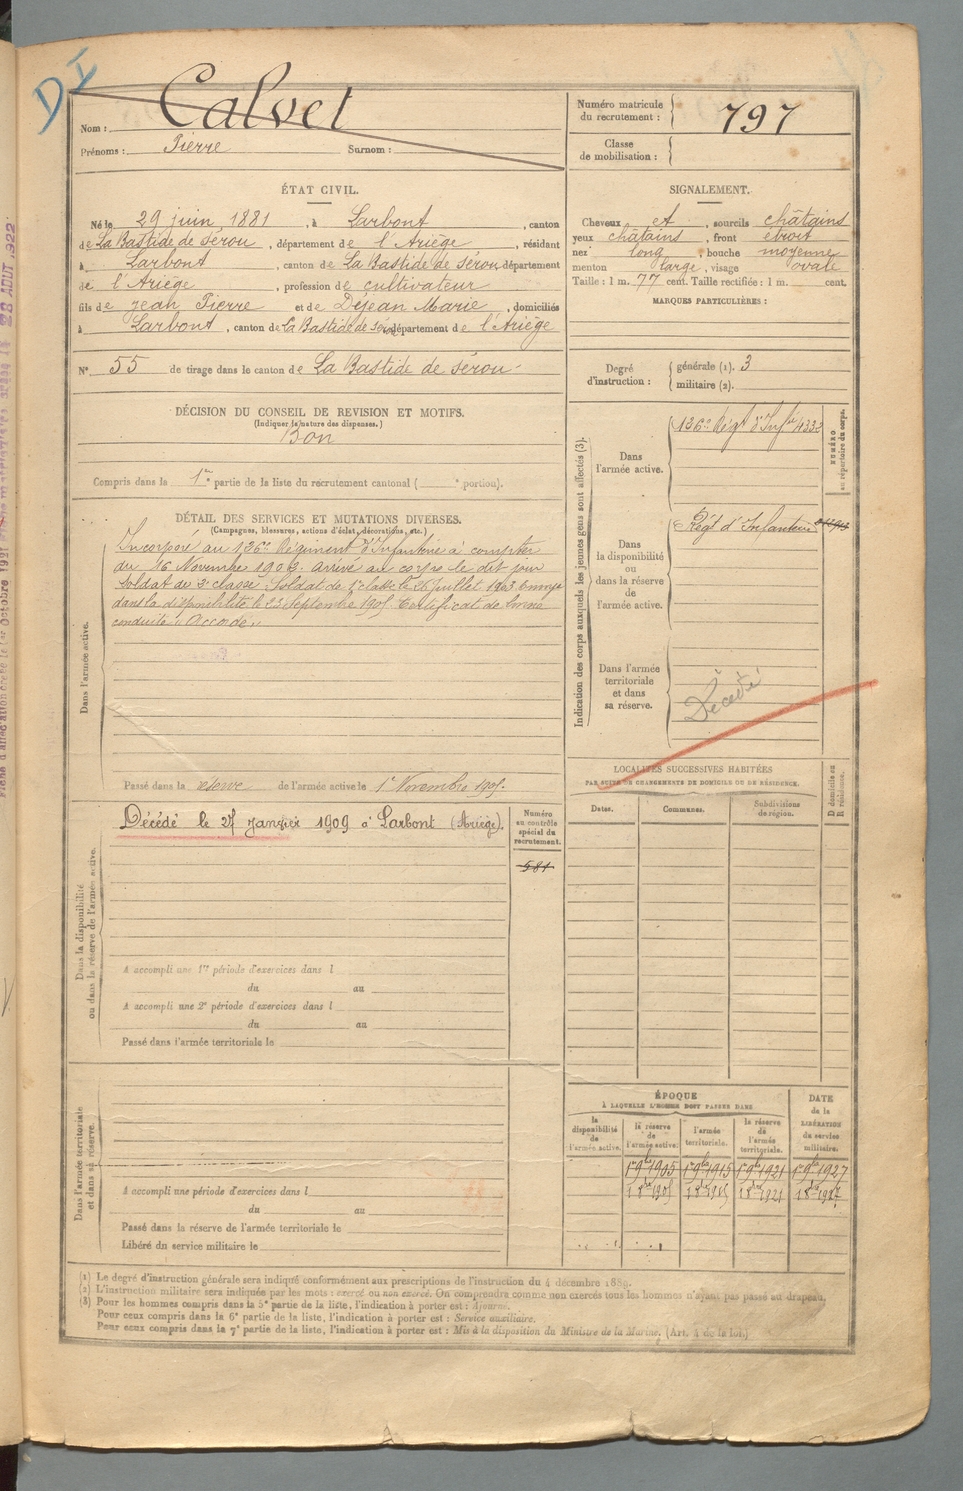 D I
Nom : Calvet
Prénoms : Pierre Surnom :
Numéro matricule
du recrutement :
797
Classe
de mobilisation :
ÉTAT CIVIL.
Né le 29 juin 1881, à Larbont, canton
de La Bastide de Sérou, département de l'Ariège, résidant
à Larbont, canton de La Bastide de Sérou département
de l'Ariège, profession de cultivateur
fils de Jean Pierre et de Déjean Marie, domiciliés
à Larbont, canton de La Bastide de Sérou département de l'Ariège
N° 55 de tirage dans le canton de La Bastide de Sérou
SIGNALEMENT.
Cheveux et, sourcils châtains
yeux châtains, front étroit
nez long, bouche moyenne
menton large, visage ovale
Taille : 1 m. 77 cent. Taille rectifiée : 1 m. cent.
MARQUES PARTICULIÈRES :
Degré
d'instruction :
générale (1). 3
militaire (2).
DÉCISION DU CONSEIL DE REVISION ET MOTIFS.
(Indiquer la nature des dispenses.)
Bon
Compris dans la 1re partie de la liste du recrutement cantonal ( e portion).
DÉTAIL DES SERVICES ET MUTATIONS DIVERSES.
(Campagnes, blessures, actions d'éclat, décorations, etc.)
Dans l'armée active.
Incorporé au 136e Régiment d'Infanterie à compter
du 16 Novembre 1902. arrivé au corps le dit jour
Soldat de 2e classe. Soldat de 1e classe le 26 juillet 1903
dans la disponibilité le 23 Septembre 1905. Certificat de bonne
conduite "Accordé"
Passé dans la réserve de l'armée active le 1er Novembre 1905.
Indication des corps auxquels les jeunes gens sont affectés (3).
NUMÉRO
au répertoire du corps.
Dans
l'armée active.
136e Régt d'Infie 4332
Dans
la disponibilité
ou
dans la réserve
de
l'armée active.
Régt d'Infanterie
Dans l'armée
territoriale
et dans
sa réserve.
Décédé
Dans la disponibilité
ou dans la réserve de l'armée active.
Décédé le 27 janvier 1909 à Larbont (Ariège).
Numéro
au contrôle
spécial du
recrutement.
581
A accompli une 1re période d'exercices dans l
du au
A accompli une 2e période d'exercices dans l
du au
Passé dans l'armée territoriale le
LOCALITÉS SUCCESSIVES HABITÉES
PAR SUITE DE CHANGEMENTS DE DOMICILE OU DE RÉSIDENCE.
Dates.
Communes.
Subdivisions
de région.
D domicile ou
R résidence.
Dans l'armée territoriale
et dans sa réserve.
A accompli une période d'exercices dans l
du au
Passé dans la réserve de l'armée territoriale le
Libéré du service militaire le
ÉPOQUE
À LAQUELLE L'HOMME DOIT PASSER DANS
DATE
de la
LIBÉRATION
du service
militaire.
la
disponibilité
de
l'armée active.
la réserve
de
l'armée active.
l'armée
territoriale.
la réserve
de
l'armée
territoriale.
1 9bre 1905 1 9bre 1915 1 9bre 1921 1 9bre 1927
(1) Le degré d'instruction générale sera indiqué conformément aux prescriptions de l'instruction du 4 décembre 1889.
(2) L'instruction militaire sera indiquée par les mots : exercé ou non exercé. On comprendra comme non exercés tous les hommes n'ayant pas passé au drapeau.
(3) Pour les hommes compris dans la 5e partie de la liste, l'indication à porter est : Ajourné.
Pour ceux compris dans la 6e partie de la liste, l'indication à porter est : Service auxiliaire.
Pour ceux compris dans la 7e partie de la liste, l'indication à porter est : Mis à la disposition du Ministre de la Marine. (Art. 4 de la loi.)